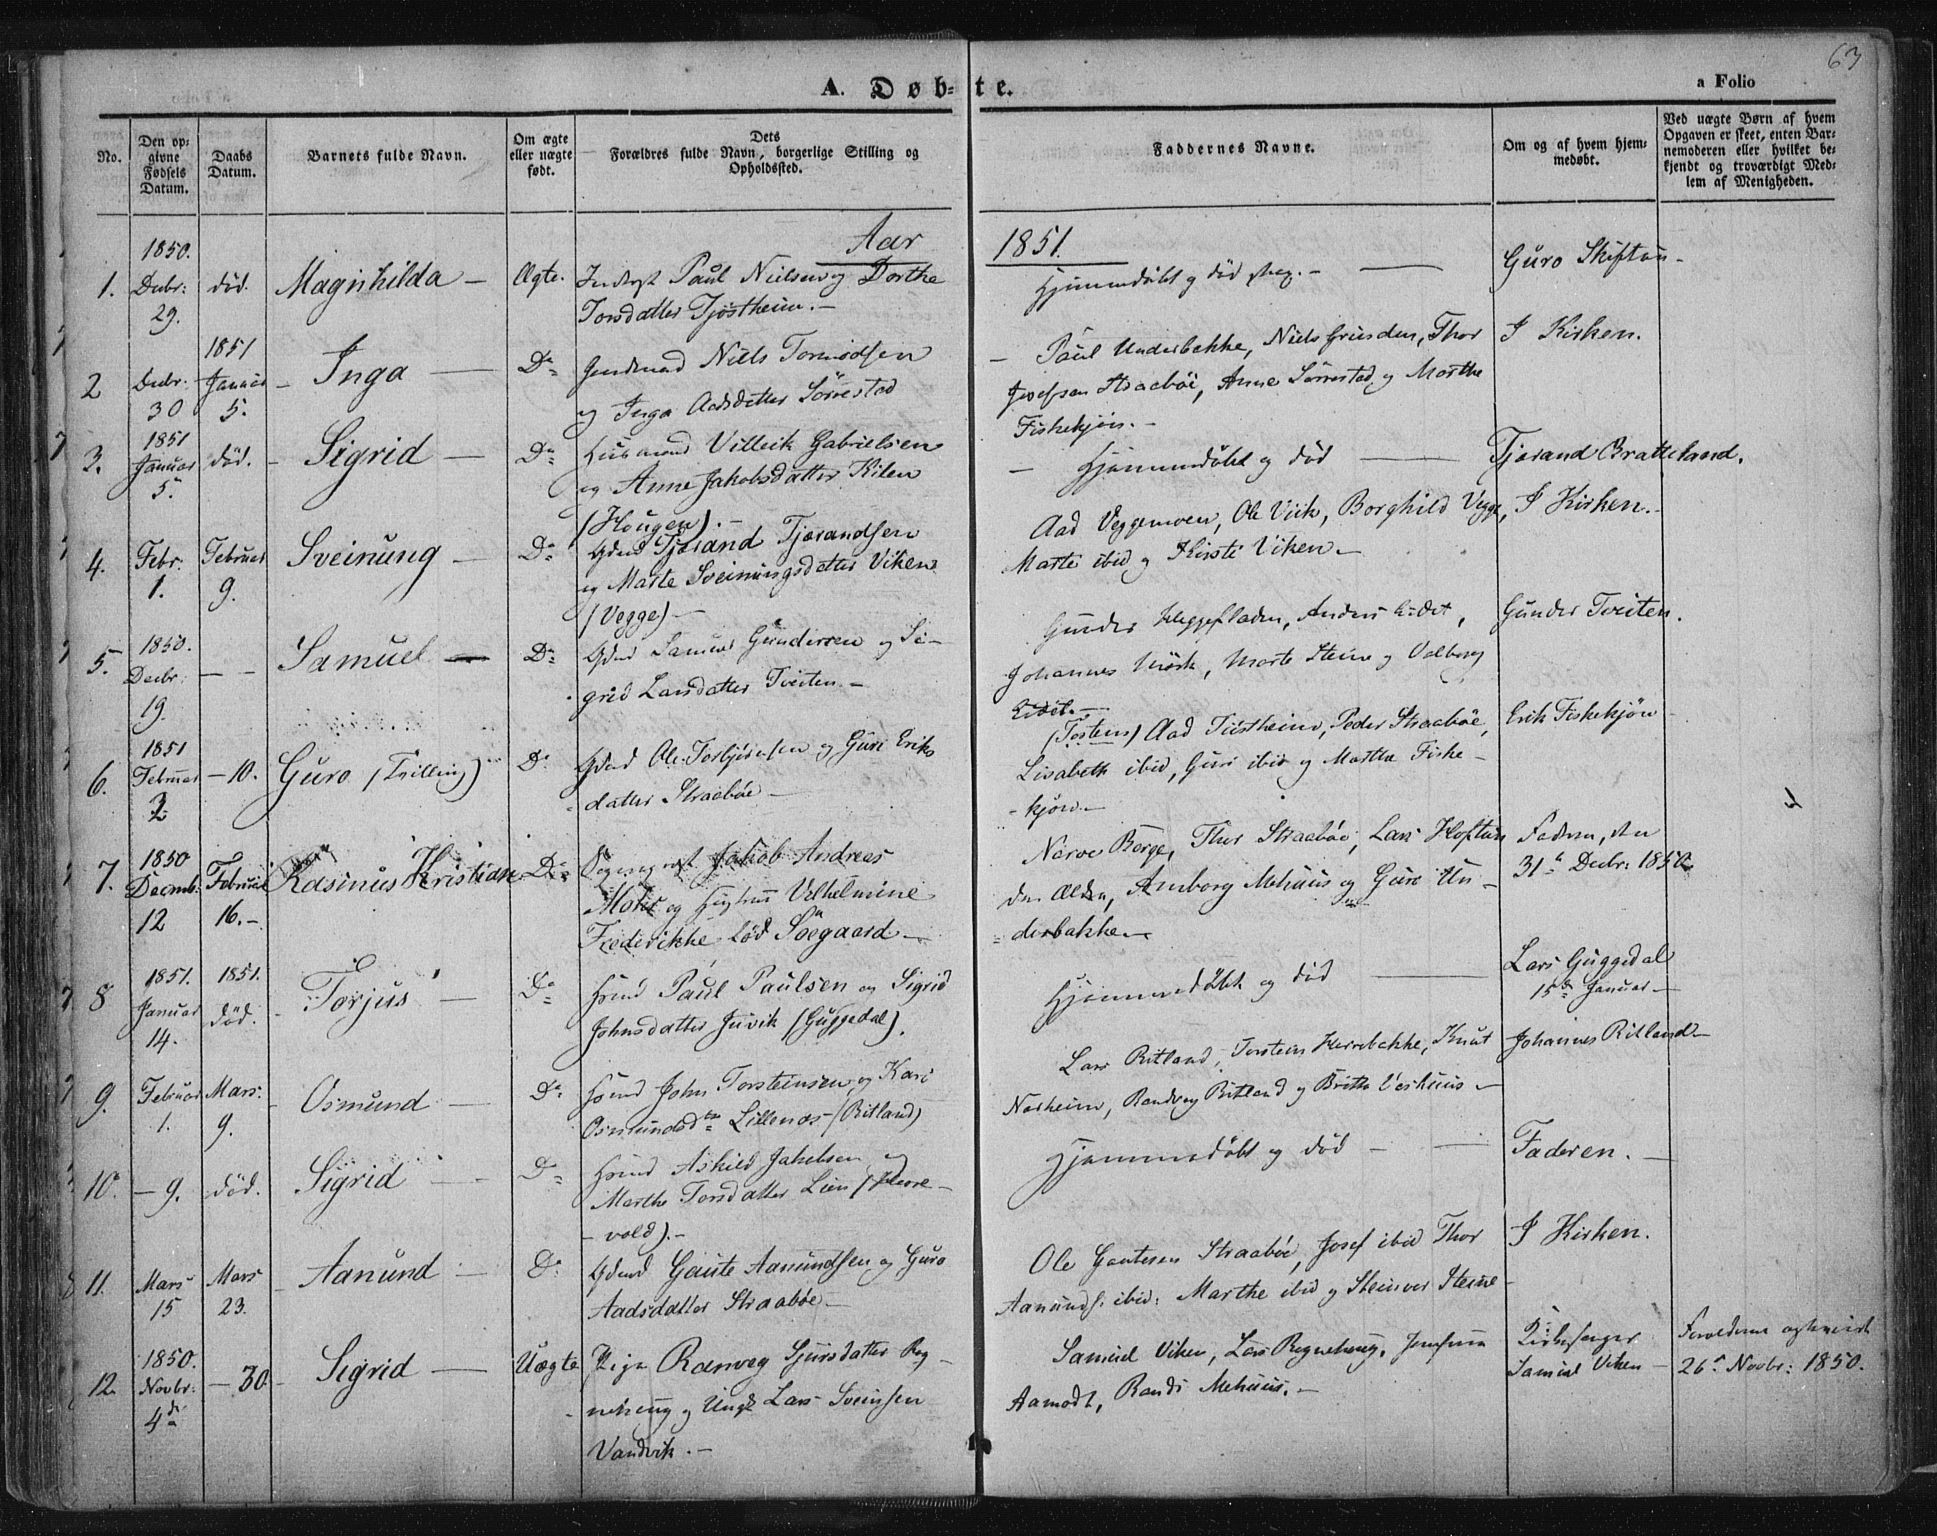 63
A. Døb-te.
a Folio
No.
Den op-
givne
Fødsels
Datum.
Daabs
Datum.
Barnets fulde Navn.
Om ægte
eller uægte
født.
Dets
Forældres fulde Navn, borgerlige Stilling og
Opholdssted.
Faddernes Navne.
Om og af hvem hjem-
medøbt.
Ved uægte Børn af hvem
Opgaven er skeet, enten Bar-
nemoderen eller hvilket be-
kjendt og troværdigt Med-
lem af Menigheden.
Aar 1851.
1.
1850.
Decbr:
29.
död.
Magnhilda —
Ægte.
Paul Nielsen og Dorthe
Torsdatter Tjöstheim.—
Hjemmedöbt og död
Guro Skiftun
2
Decbr.
30
1851
Januar
5.
Inga —
Do
Niels Tormodsen
og Inga Aadsdatter Sörrestad
Paul Underbakke, Niels Grinden, Thor
Josefsen Straaböe, Anne Sörrestad og Marthe
Fiskekjön.—
I Kirken.
3.
1851
Januar
5.
död.
Sigrid —
Do
Husmand Villeik Gabrielsen
og Anne Jakobsdatter Kilen
(Hougen).—
Hjemmedöbt og död
Tjærand Bratteland.
4.
Febr:
1.
Februar
9.
Sveinung —
Do
Gdmd Tjærand Tjærandsen
og Marte Sveinungsdatter Viken
(Vegge)—
Aad Veggemoen, Ole Viik, Borghild Vegge,
Marte ibid og Kirsti Viken—
I Kirken.—
5.
1850.
Decbr:
19.
— —
Samuel —
Do
Gdmd Samuel Gundersen og Si-
grid Larsdatter Tveiten.—
Gunder Heggefladen, Anders Eidet,
Johannes Mörk, Marte Steine og Valborg
Eidet.—
Gunder Tveiten.
6.
1851
Februar
3.
— 10.
Guro (Tvilling)
Do
Gdmd Ole Torbjörnsen og Guri Eriks
datter Straaböe—
(Tostens) Aad Tjöstheim, Peder Straaböe,
Lisabeth ibid, Guri ibid og Marthe Fiske-
kjön.—
Erik Fiskekjön
7.
1850
Decemb.
12
Februar
16.—
Rasmus Kristian
Do
Jakob Andreas
og Hustru Vilhelmine
Frederikke född Söegaard—
Narve Borge, Thor Straaböe, Lars Hoftun
den Ældre, Amborg Mehuus og Guro Un-
derbakke—
Faderen, den
31te Decbr: 1850
8
1851.
Januar
14.
1851.
död.
Torjus —
Do
Paul Paulsen og Sigrid
Johnsdatter Juvik (Guggedal).
Hjemmedöbt og död
Lars Guggedal
15de Januar—
9.
Februar
1.
Mars:
9.
Osmund —
Do
John Torsteinsen og Kari
Osmundsdtr Lillenæs (Ritland)
Lars Ritland, Torstein Herrebakke, Knut
Norheim, Randveg Ritland og Britte Veshuus—
Johannes Ritland—
10.
— 9.
död.
Sigrid —
Do
Askild Jakobsen og
Marthe Torsdatter Lien
vold).—
Hjemmedöbt og död —
Faderen. —
11.
Mars
15
Mars
23.
Aanund —
Do
Gdmd Gaute Aanundsen og Guro
Aadsdatter Straaböe—
Ole Gautesen Straaböe, Josef ibid Thor
Aanunds. ibid: Marthe ibid og Steinvor Steine
I Kirken.
12.
1850.
Novbr:
4de
— 30.
Sigrid —
Uægte
Pige Ranveg Sjursdatter Reg-
nehoug og Ungk Lars Sveinsen
Vandvik.—
Samuel Viken, Lars Regnehoug,
Aamodt, Randi Mehuus.—
Kirkesanger
Samuel Viken —
26de Novbr: 1850.